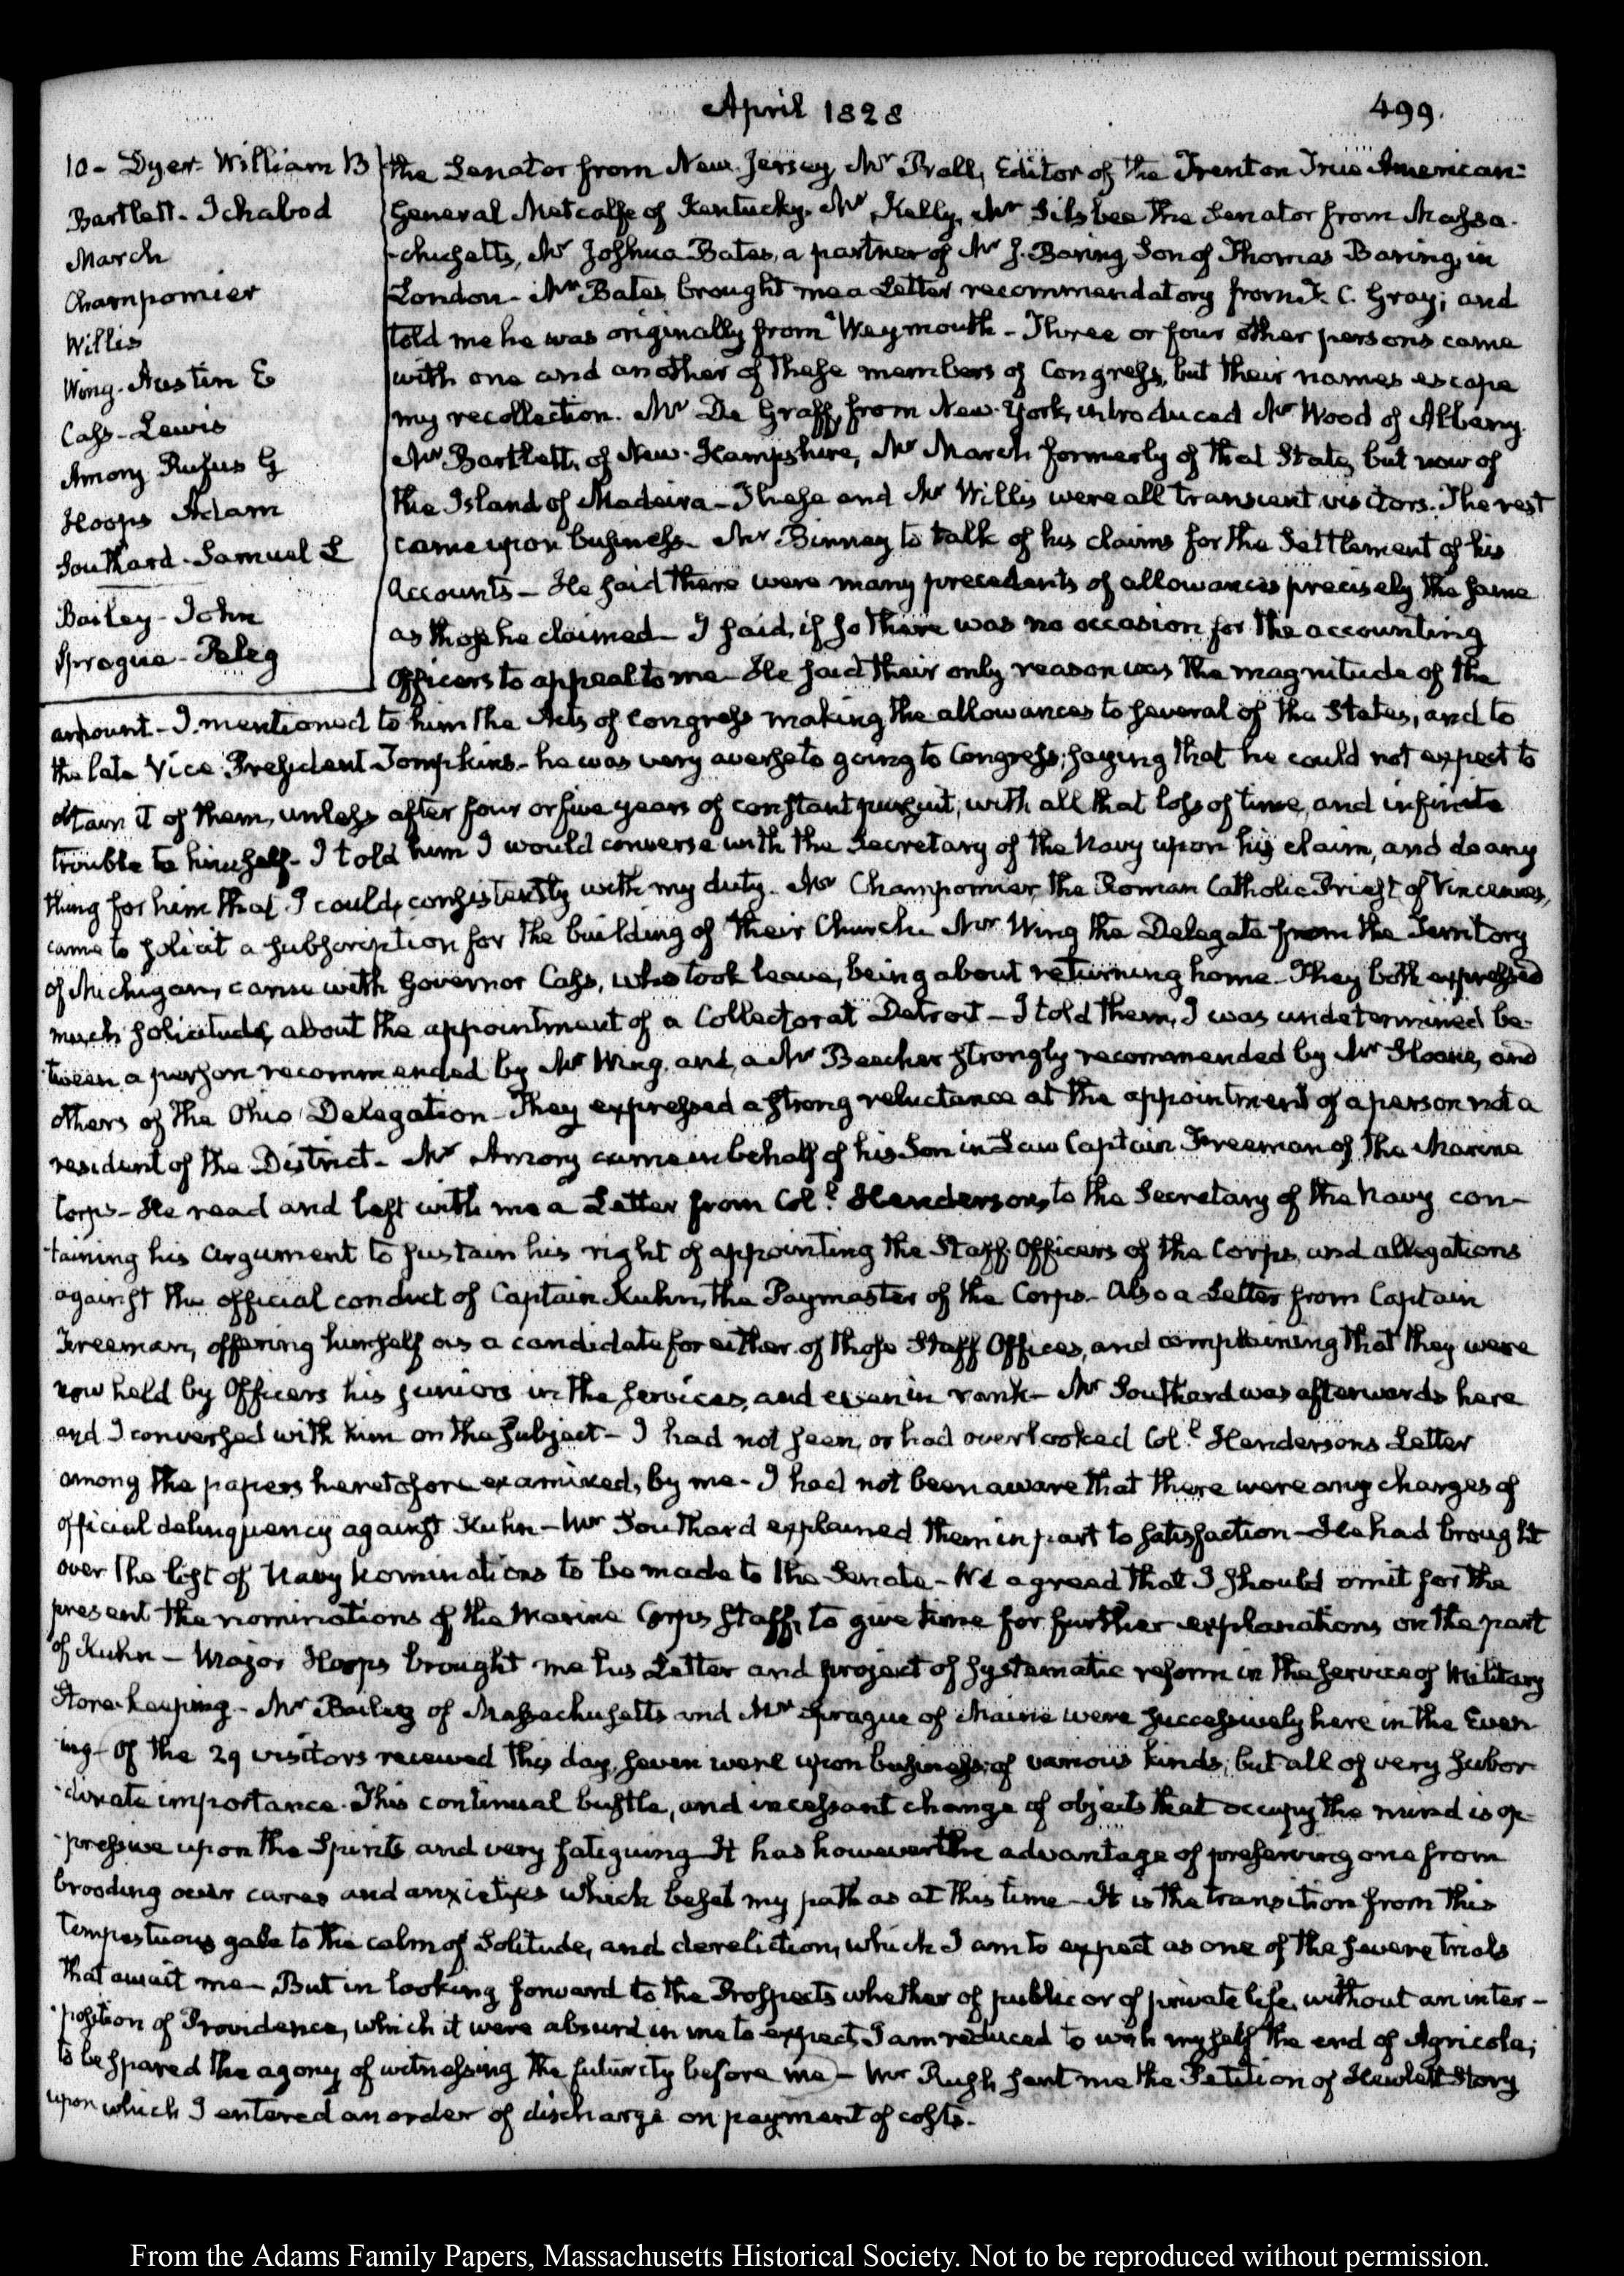 April 1828
499.
10 - Dyer. William B
Bartlett. Ichabod
March
Champomier
Willis
Wing. Austin E
Cass - Lewis
Amory Rufus G
Hoops Adam
Southard. Samuel L
Bailey - John
Sprague - Peleg
the Senator from New Jersey, Mr Prall, Editor of the Trenton True American.
General Metcalfe of Kentucky. Mr Kelly, Mr Silsbee the Senator from Massa-
-chusetts, Mr Joshua Bates, a partner of Mr J. Baring, Son of Thomas Baring, in
London - Mr Bates brought me a Letter recommendatory from F. C. Gray; and
told me he was originally from Weymouth - Three or four other persons came
with one and another of these members of Congress, but their names escape
my recollection. Mr De Graff, from New-York, introduced Mr Wood of Albany.
Mr Bartlett, of New-Hampshire, Mr March formerly of that State, but now of
the Island of Madeira - These and Mr Willis were all transient visitors. The rest
came upon business. Mr Binney to talk of his claims for the Settlement of his
accounts - He said there were many precedents of allowances precisely the same
as those he claimed - I said, if so there was no occasion for the accounting
Officers to appeal to me - He said their only reason was the magnitude of the
amount - I mentioned to him the Acts of Congress making the allowances to several of the States, and to
the late Vice President Tompkins - he was very averse to going to Congress; saying that he could not expect to
obtain it of them, unless after four or five years of constant pursuit, with all that loss of time, and infinite
trouble to himself - I told him I would converse with the Secretary of the Navy upon his claim, and do any
thing for him that I could, consistently with my duty. Mr Champomier, the Roman Catholic Priest of Vincennes,
came to solicit a subscription for the building of their Church. Mr Wing the Delegate from the Territory
of Michigan, came with Governor Cass, who took leave, being about returning home - They both expressed
much solicitude, about the appointment of a Collector at Detroit - I told them, I was undetermined be-
-tween a person recommended by Mr Wing, and, a Mr Beecher strongly recommended by Mr Sloane, and
others of the Ohio Delegation - They expressed a strong reluctance at the appointment of a person not a
resident of the District - Mr Amory came in behalf of his Son in Law Captain Freeman of the Marine
Corps - He read and left with me a Letter from Coll. Henderson, to the Secretary of the Navy con-
-taining his argument to sustain his right of appointing the Staff Officers of the Corps, and allegations
against the official conduct of Captain Kuhn, the Paymaster of the Corps - Also a Letter from Captain
Freeman, offering himself as a candidate for either of those Staff Offices, and complaining that they were
now held by Officers his juniors in the services, and even in rank - Mr Southard was afterwards here
and I conversed with him on the subject - I had not seen, or had overlooked Coll. Hendersons Letter
among the papers heretofore examined, by me - I had not been aware that there were any charges of
official delinquency against Kuhn - Mr Southard explained them in part to satisfaction - He had brought
over the list of Navy Nominations to be made to the Senate - We agreed that I should omit for the
present the nominations of the Marine Corps Staff, to give time for further explanations on the part
of Kuhn - Major Hoops brought me his Letter and project of systematic reform in the service of Military
Store-keeping - Mr Bailey of Massachusetts and Mr Sprague of Maine were successively here in the Even-
-ing - Of the 29 visitors received this day, seven were upon business; of various kinds; but all of very subor-
-dinate importance. This continual bustle, and incessant change of objects that occupy the mind is op-
-pressive upon the Spirits and very fatiguing - It has however the advantage of preserving one from
brooding over cares and anxieties which beset my path as at this time - It is the transition from this
tempestuous gale to the calm of Solitude, and dereliction, which I am to expect as one of the severe trials
that await me - But in looking forward to the Prospects whether of public or of private life, without an inter-
-position of Providence, which it were absurd in me to expect, I am reduced to wish myself the end of Agricola;
to be spared the agony of witnessing the futurity before me - Mr Rush sent me the Petition of Hewlett Story
upon which I entered an order of discharge on payment of costs.
From the Adams Family Papers, Massachusetts Historical Society. Not to be reproduced without permission.